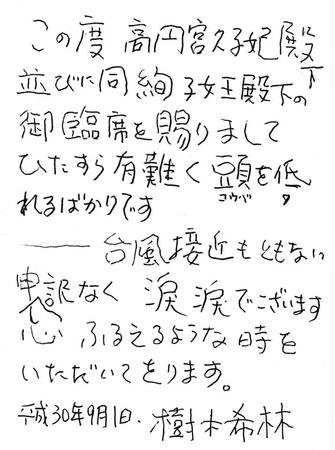 この度 高円宮久子妃殿下
並びに同 絢子女王殿下の
御臨席を賜りまして
ひたすら有難く 頭を低
コウベ タ
れるばかりです
――― 台風接近もともない
申訳なく 涙涙でございます
心 ふるえるような時を
いただいてをります。
平成30年9月1日. 樹木希林